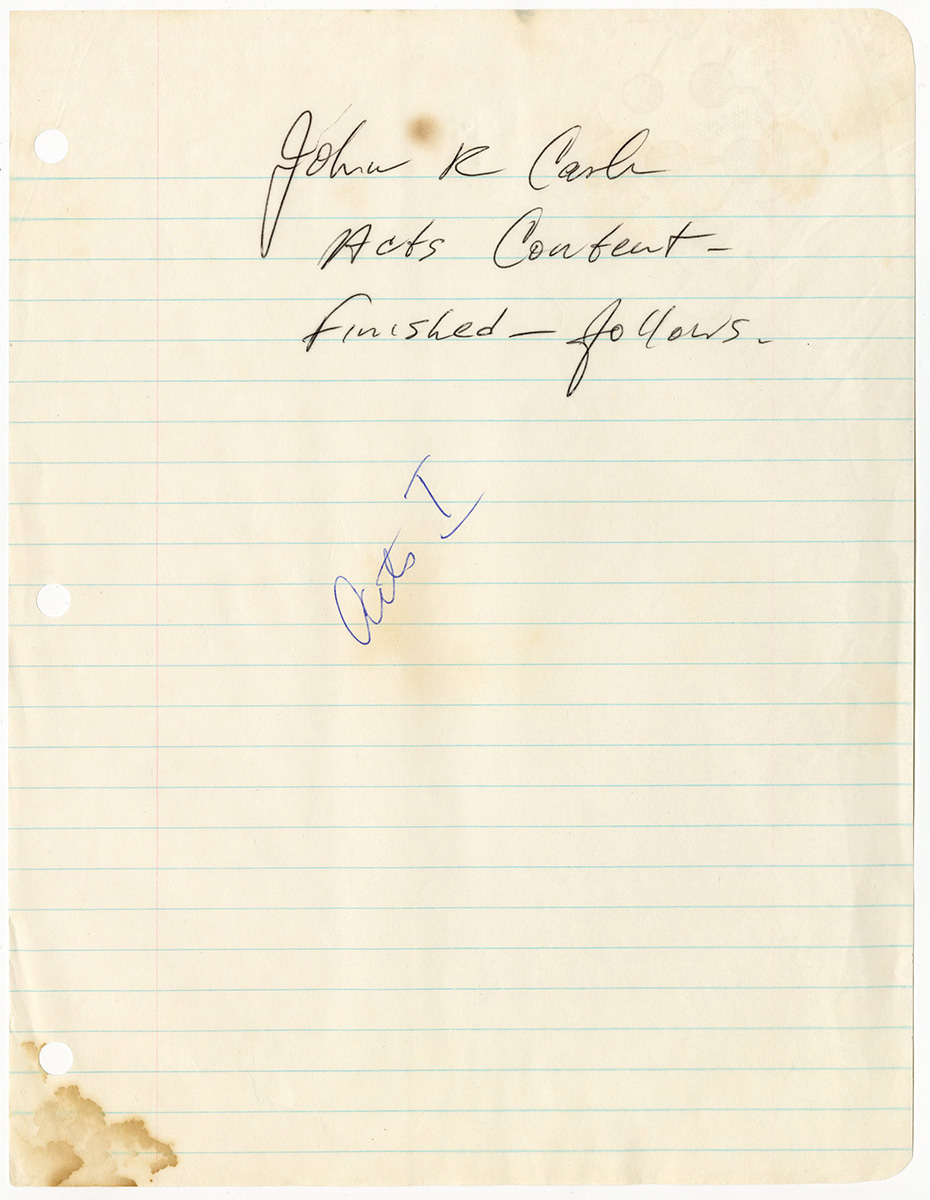 John R Cash
Acts Content-
Finished - follows.
Acts I